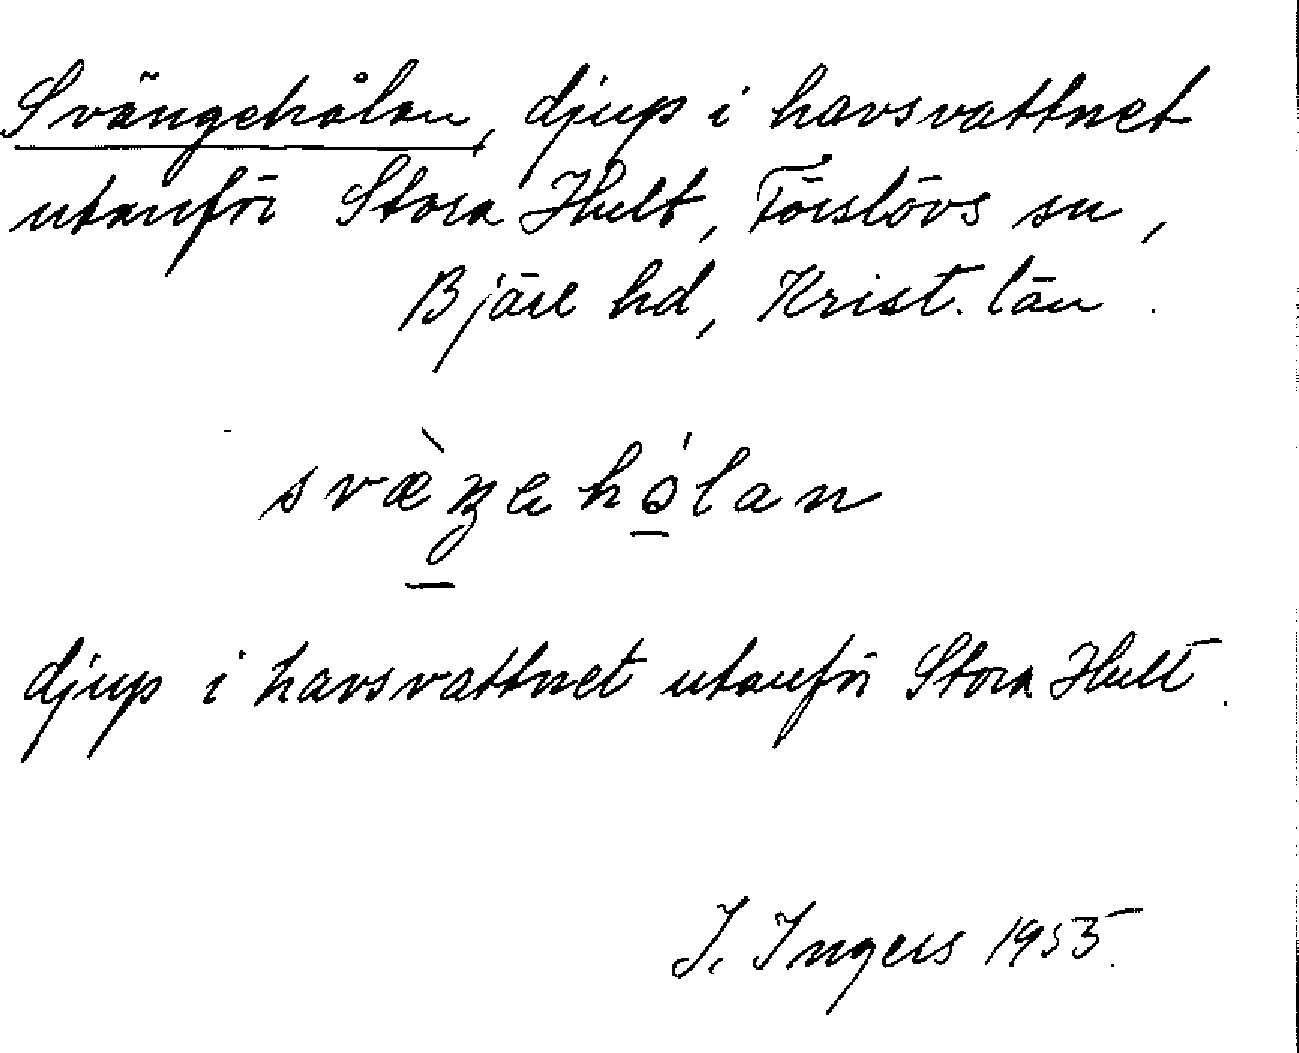 Svängehålan, djup i havsvattnet
utanför Stora Hult, Förslövs sn,
Bjäre hd, Krist. län.
svæ̀ŋɐhɔ́lan
djup i havsvattnet utanför Stora Hult.
I. Ingers 1955.